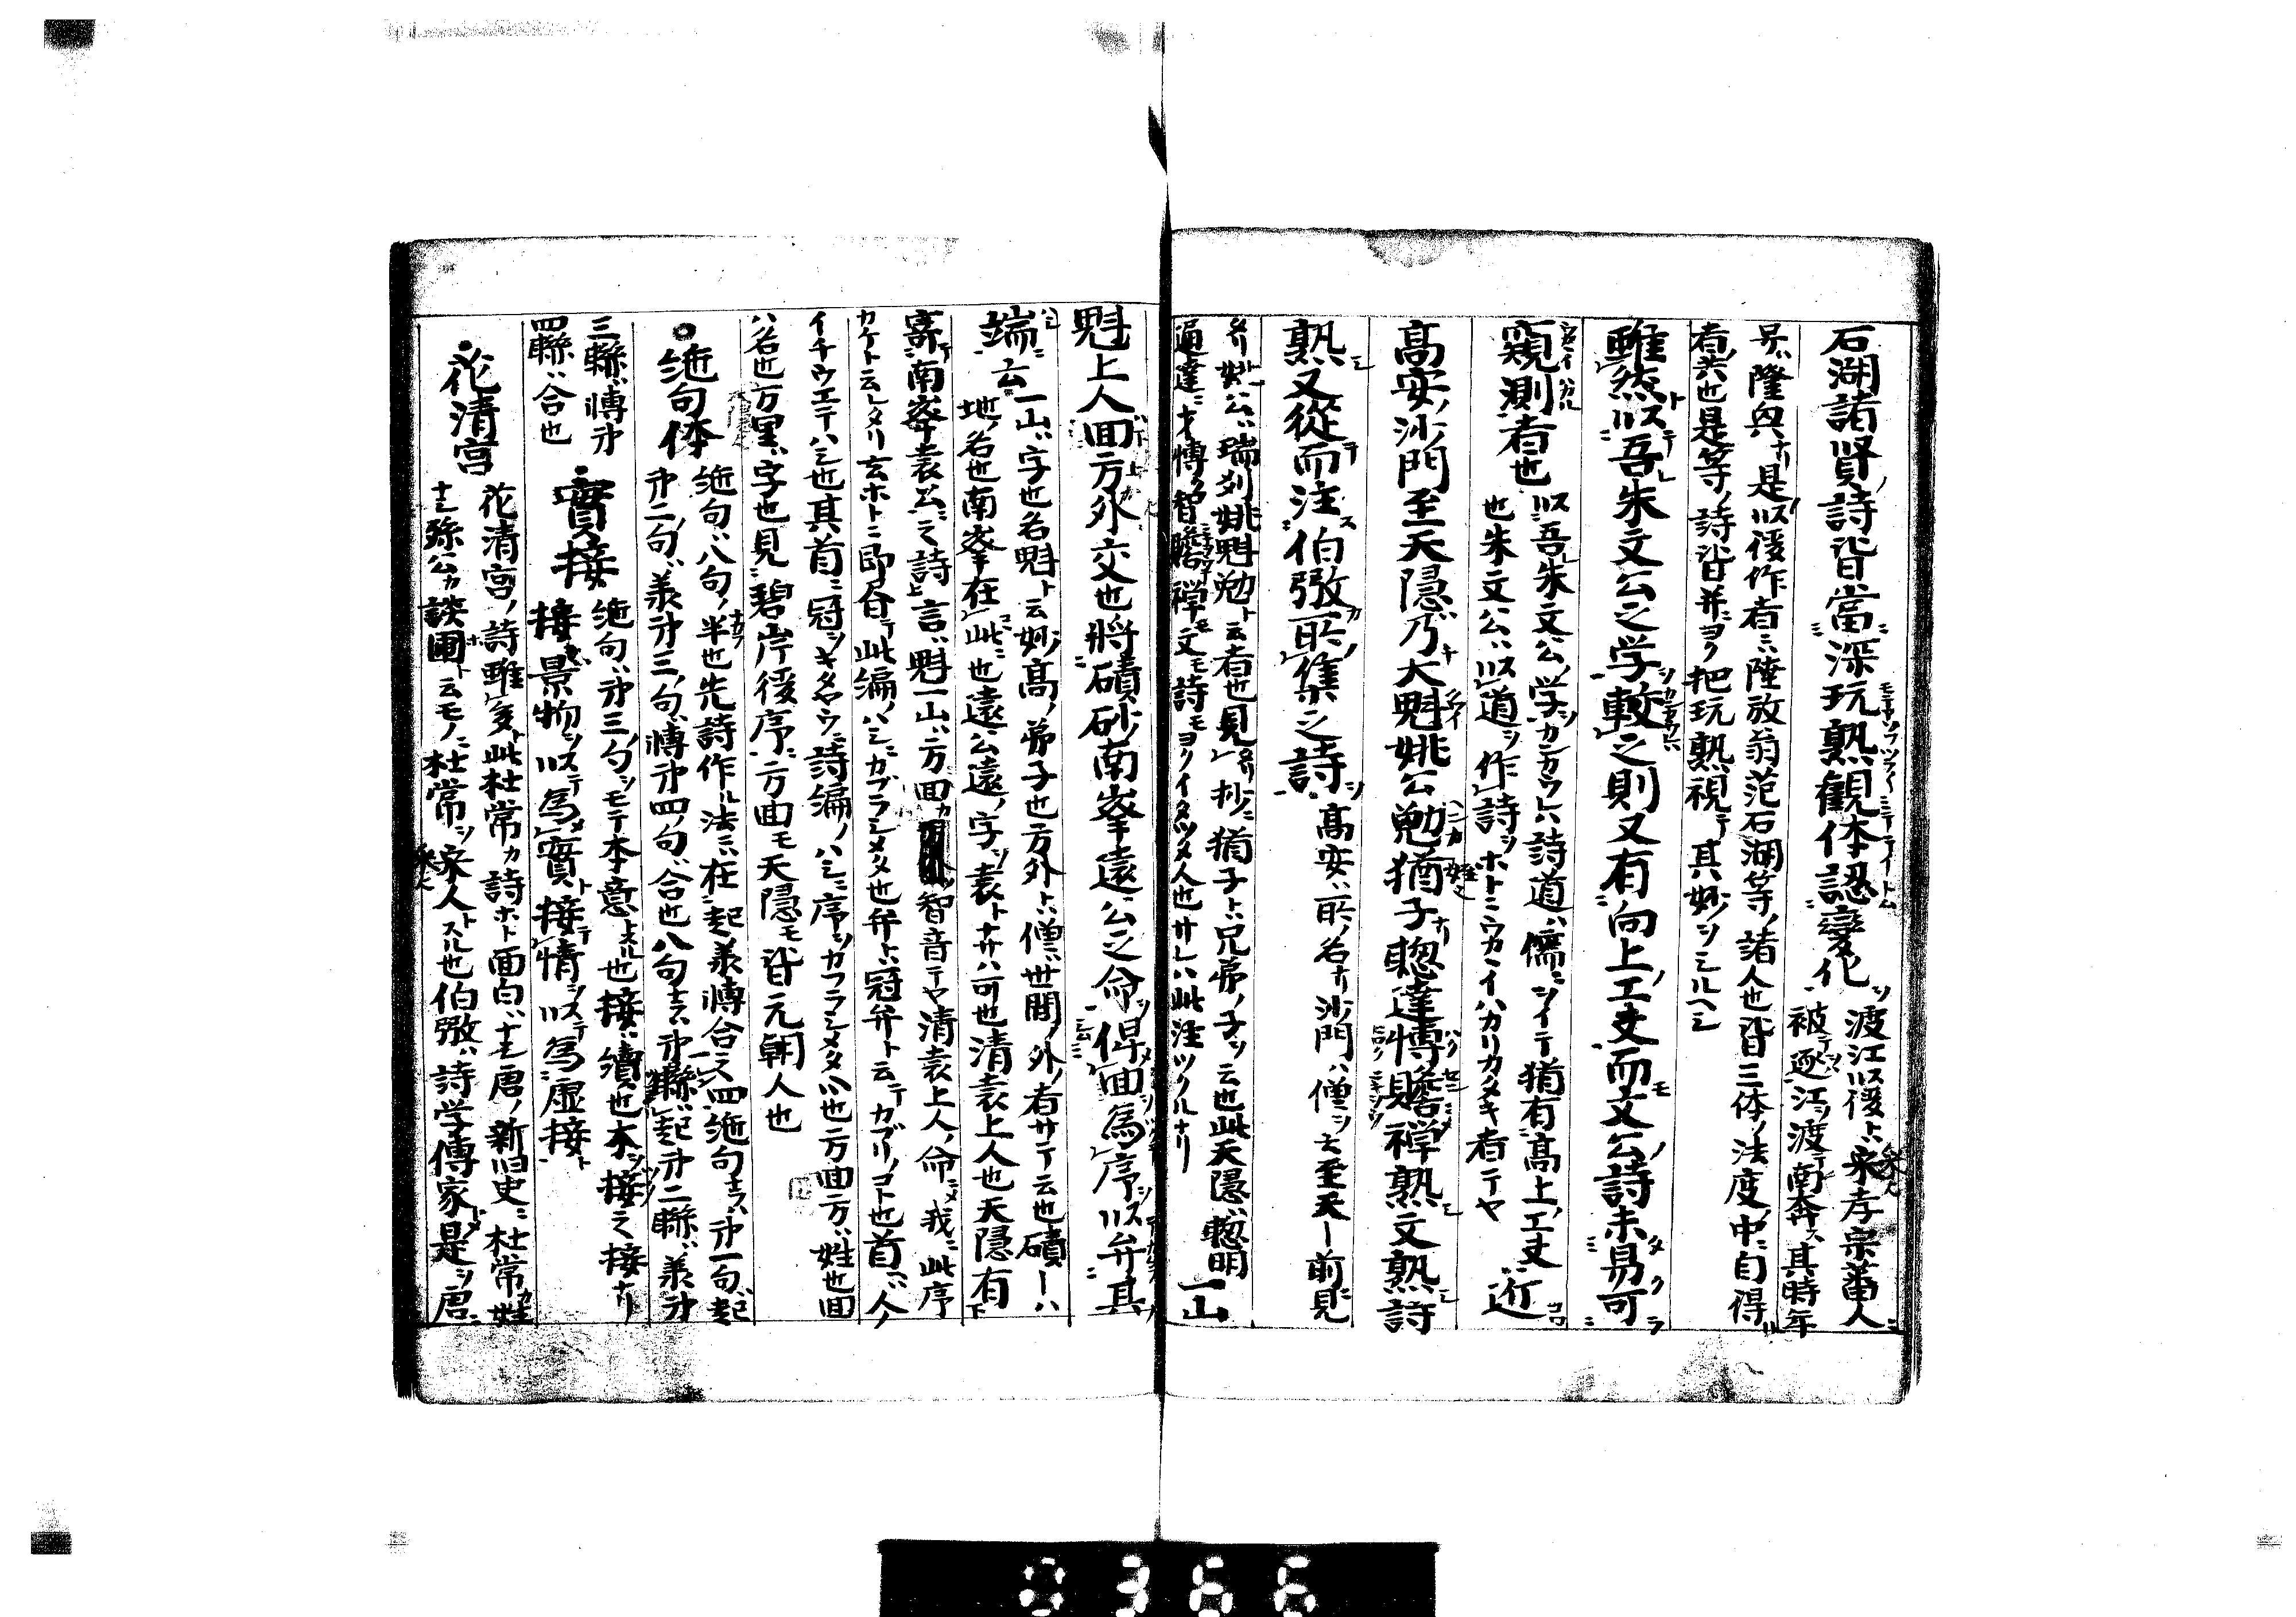 石湖諸賢詩皆當深玩熟観体認変化
渡江以後トハ宋孝宗蕃人ニ
被逐テ江ヲ渡テ南奔ス其時年
号ハ隆興ナリ是以後作者ニハ陸放翁范石湖等ノ諸人也皆三体ノ法度ノ中ニ自得ル
有者也是等ノ詩皆并ヨク把玩熟視テ其妙ヲシルヘシ
雖然以吾朱文公之学較之則又有向上工夫而文公詩未易可
窺測者也
以吾朱文公ノ学ヲカンカウレハ詩道ハ儒ニツイテ猶有高上ノ工夫
也朱文公ハ以道ヲ作詩ヲホトニウカヽイハカリカタキ者テヤ
近
高安沙門至天隠乃大魁姚公勉猶子聡達博贍禅熟文熟詩
熟又從而注伯弜所集之詩
高安ハ所ノ名ナリ沙門ハ僧ヲ云至天ー前見
タリ姚公ハ瑞州姚魁勉ト云者也見タリ抄ニ猶子トハ兄弟ノ子ヲ云也此天隠ハ聡明
通達ニ才博ク智贍禅モ文モ詩モヨクイタツタ人也サレハ此注ツクルナリ
一山
魁上人回方外交也將磧砂南峯遠公之命俾回為序以弁其
端云
一山ハ字也名魁ト云妙高ノ弟子也方外トハ僧ハ世間ノ外ノ者サテ云也磧ーハ
地ノ名也南峯在此ニ也遠公遠ノ字ヲ袁トナサハ可也清袁上人也天隠有下
寄南峯袁公之詩上言ハ魁一山ハ方回カ智音テヤ清袁上人ノ命ニメ我ニ此序
カケト云レタリ玄ホトニ即合テ此編ノハシニカブラシメタ也弁トハ冠弁ト云テカブリノコト也首ハ人ノ
イチウエテハシ也其首ニ冠ヲキタヤウニ詩編ノハシニ序ヲカフラシメタハ也方回方ハ姓也回
ハ名也万里ハ字也見碧岸後序ニ方回モ天隠モ皆元朝人也
絶句体
絶句ハ八句ノ半也先詩作ル法ニハ在起承轉合之四絶句ナラハ第一句ハ起
第二句ハ承第三ノ句ハ轉第四ノ句ハ合也八句ナラハ第一聯ハ起第二聯ハ承第
三聯ハ轉第
四聯ハ合也
實接
絶句ハ第三ノ句ヲモテ本意トスル也接ハ續也本ヲ接之接ナリ
接景物ヲ以テ為實接ト接情ヲ以テ為虚接ト
花清宮
花清宮ノ詩雖多ト此杜常カ詩ホト面白ハナキ唐ノ新旧史ニ杜常カ姓
ナシ孫公カ談圃ト云モノニ杜常ヲ宋人トスル也伯弜ハ詩学傳家是ヲ唐ニ
0366